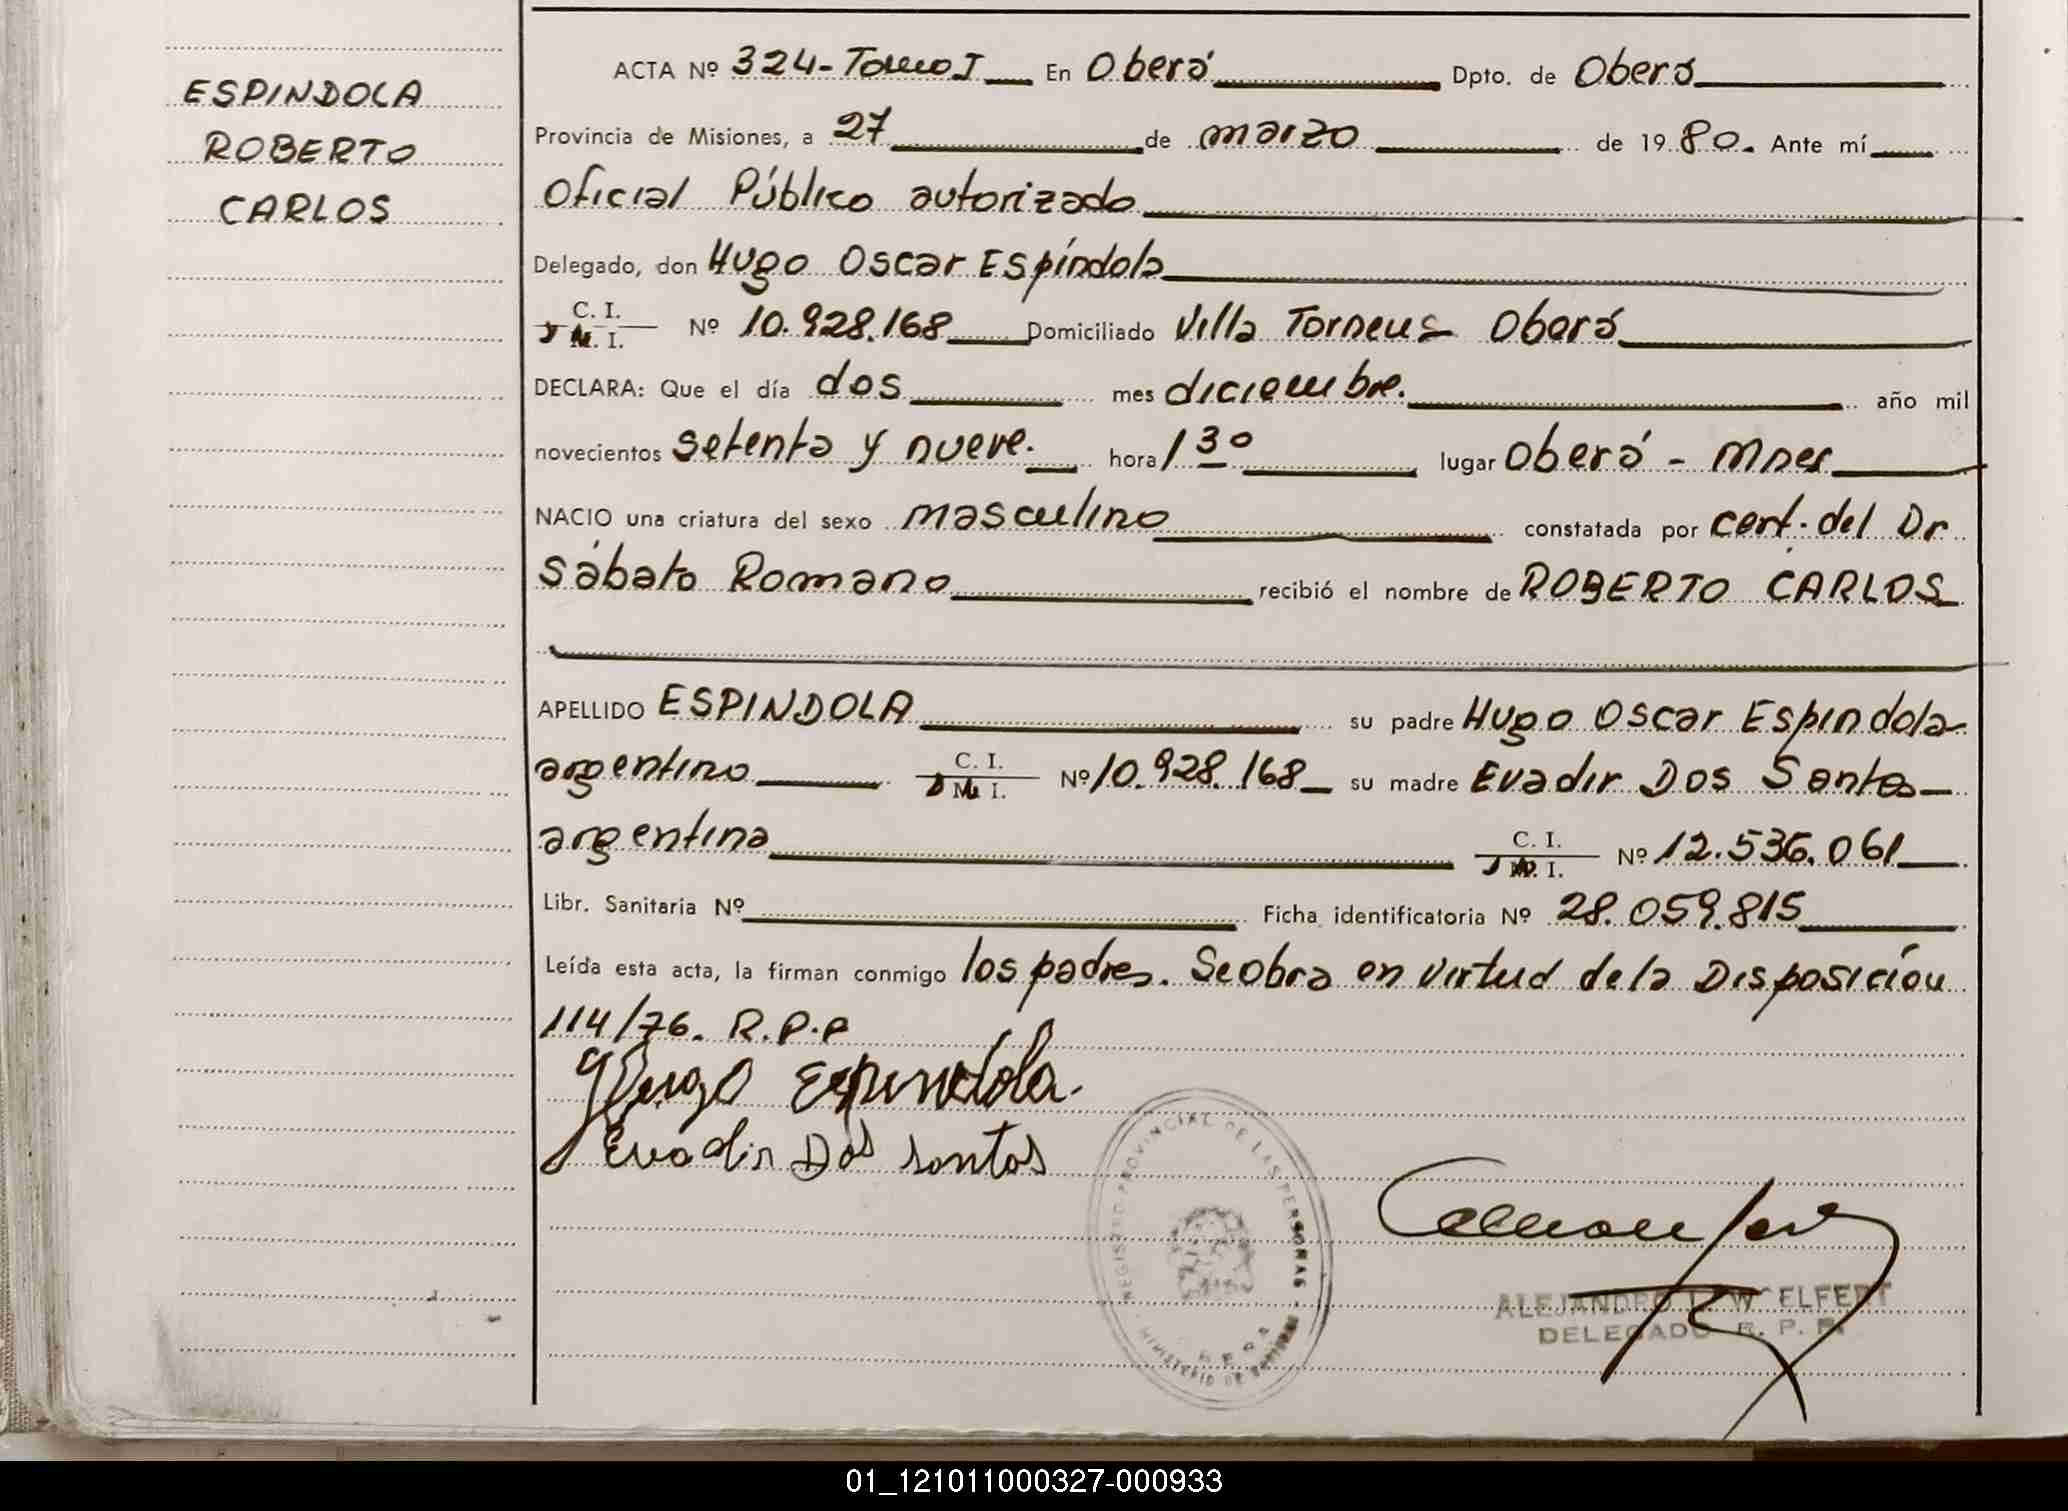 ESPINDOLA
ROBERTO
CARLOS
ACTA Nº 324-Tomo I En Oberá Dpto. de Oberá
Provincia de Misiones, a 27 de marzo de 1980. Ante mí
Oficial Público autorizado
Delegado, don Hugo Oscar Espíndola
C. I.
M. I. Nº 10.928.168 Domiciliado Villa Torneus Oberá
DECLARA: Que el día dos mes diciembre. año mil
novecientos setenta y nueve. hora 1 30 lugar Oberá - Mnes
NACIO una criatura del sexo masculino constatada por cert. del Dr
Sábato Romano recibió el nombre de ROBERTO CARLOS
APELLIDO ESPINDOLA su padre Hugo Oscar Espindola
argentino C. I. M. I. Nº 10.928.168 su madre Evadir Dos Santos
argentina C. I. M. I. Nº 12.536.061
Libr. Sanitaria Nº Ficha identificatoria Nº 28.059.815
Leída esta acta, la firman conmigo los padres. Se obra en virtud de la Disposición
114/76. R.P.P
Hugo Espindola.
Evadir Dos santos
REGISTRO PROVINCIAL DE LAS PERSONAS - MINISTERIO DE
ALEJANDRO ELFERT
DELEGADO R. P. P.
01_121011000327-000933